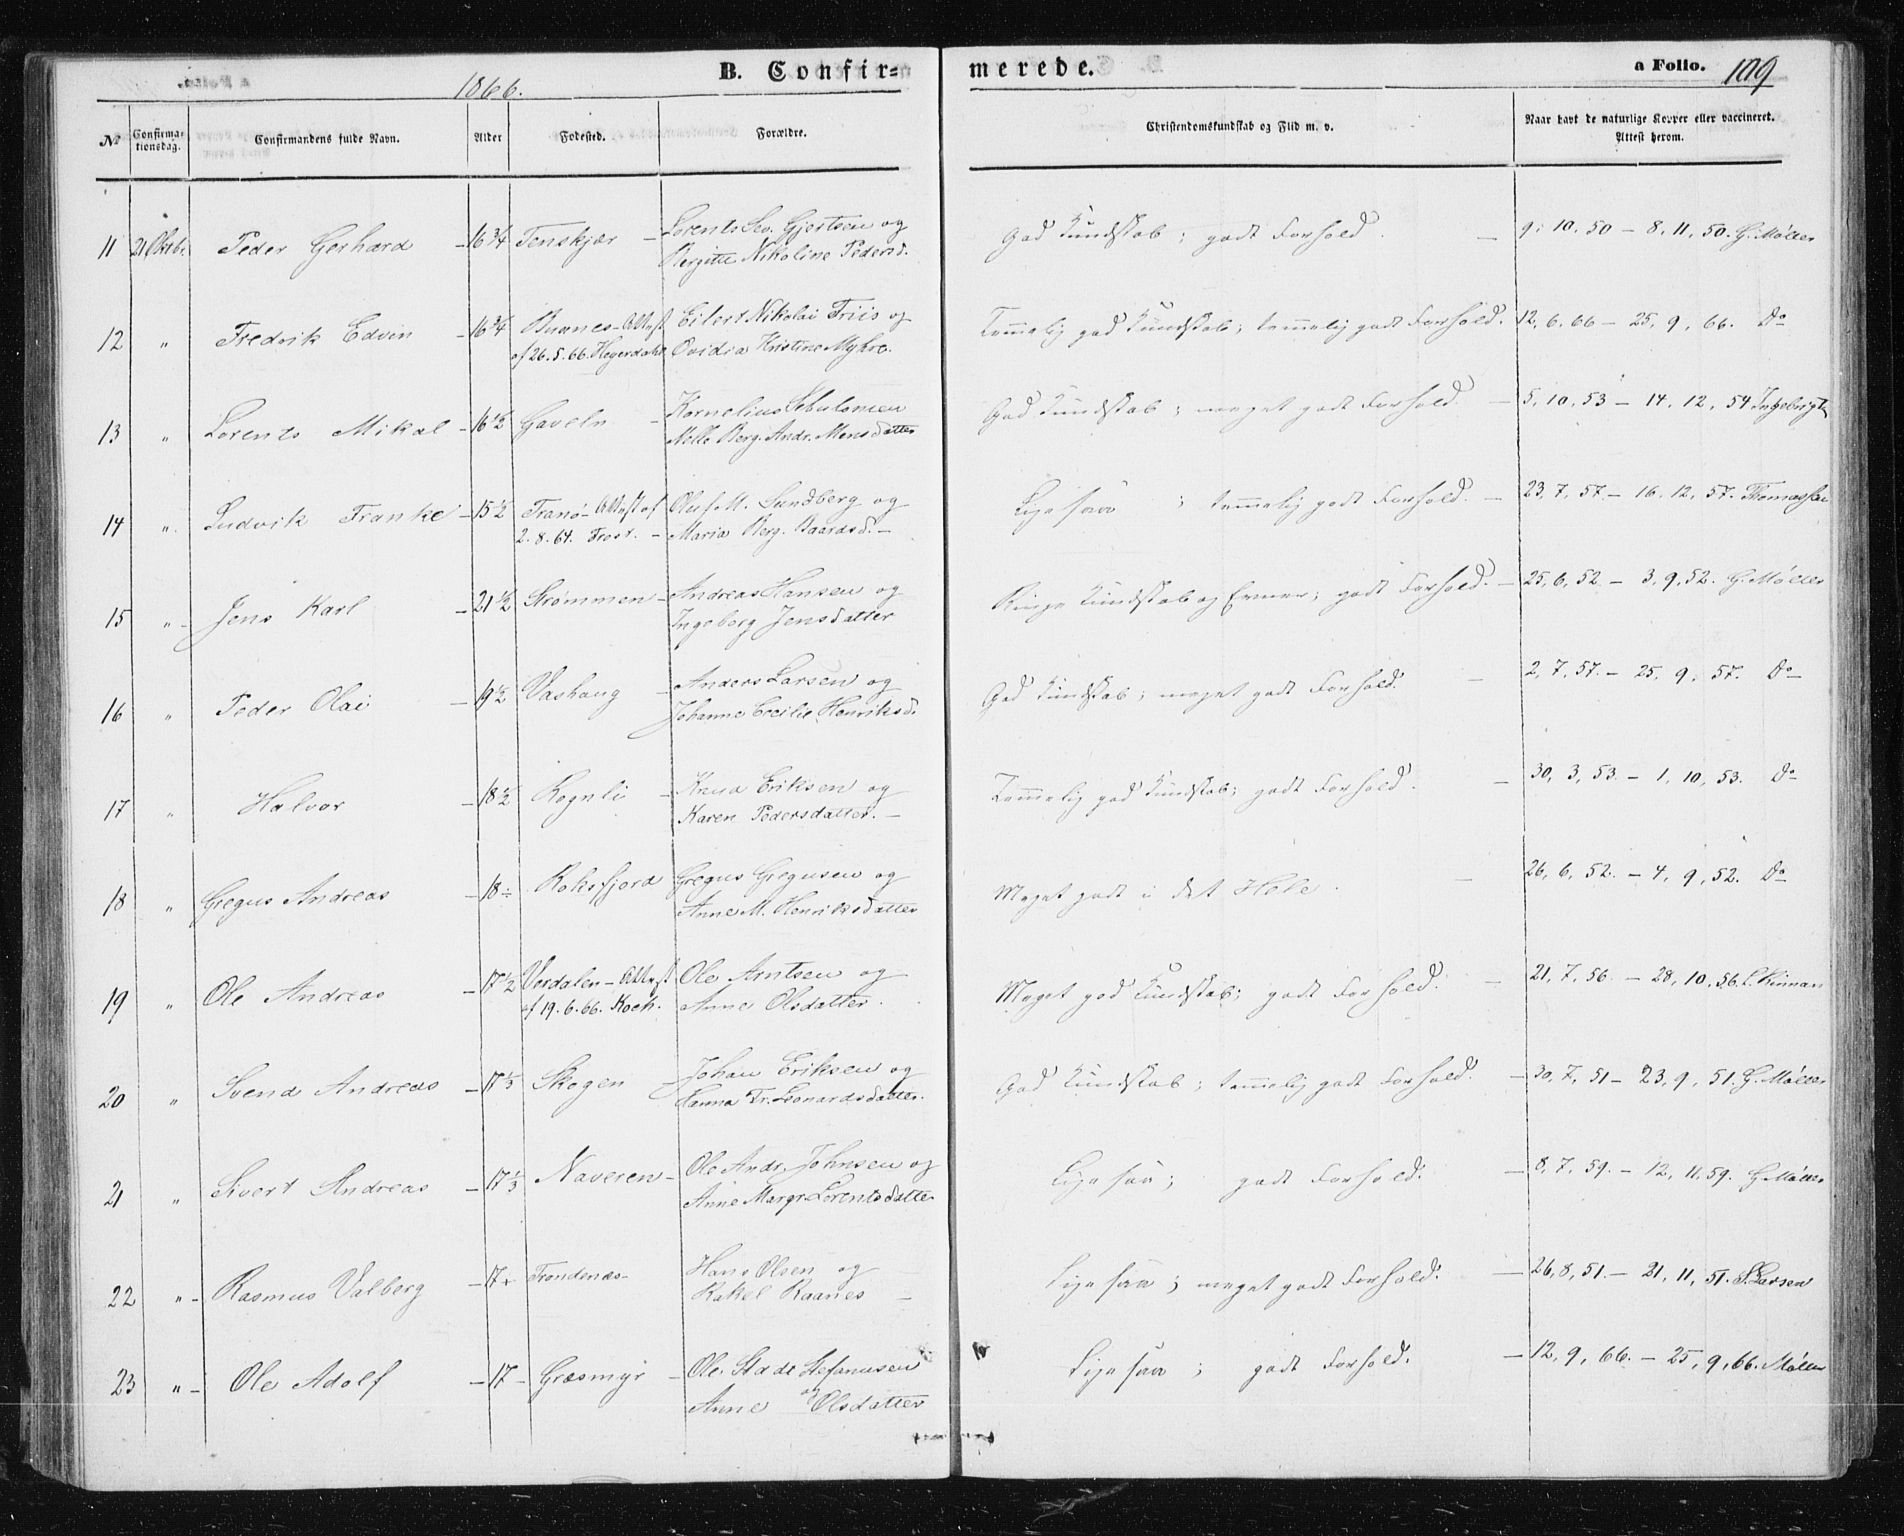 1866.
B. Confir=
merede.
a Folio. 109
№
Confirma-
tionsdag.
Confirmandens fulde Navn.
Alder
Fødested.
Forældre.
Christendomskundskab og Flid m. v.
Naar havt de naturlige Kopper eller vaccineret.
Attest herom.
11 21 Oktbr. Peder Gerhard – 16 3/4 Tenskjær – Lorents Sev. Gjertsen og
Bergitte Nikoline Pedersd.
God Kundskab; godt Forhold. – 9, 10, 50 – 8, 11, 50. G. Møller
12 " Fredrik Edvin – 16 3/4 Buanes – Attest
af 26.5.66. Hegerdahl
Eilert Nikolai Friis og
Ovidia Kristine Myhre.
Temmelig god Kundskab; temmelig godt Forhold. 12, 6, 66 – 25, 9, 66. Do
13 " Lorents Mikal – 16 1/2 Gaveln – Kornelius Sebulonsen
Nille Berg. Andr. Monsdatter
God Kundskab; meget godt Forhold. – 5, 10, 53 – 14, 12, 54 Ingebrigts
14 " Ludvik Franke – 15 1/2 Tranø – Attest af
2.8.64. Frost. –
Oluf M. Sundberg og
Maria Berg. Baardsd. –
Ligesaa; temmelig godt Forhold. – 23, 7, 57 – 16, 12, 57. Thomassen
15 " Jens Karl – 21 1/2 Strømmen – Andreas Hansen og
Ingeborg Jensdatter
Ringe Kundskab og Evner; godt Forhold. – 25, 6, 52. – 3, 9, 52. G. Møller
16 " Peder Olai – 19 1/2 Vashaug – Anders Larsen og
Johanna Cecilie Henriksd.
God Kundskab; meget godt Forhold. – 2, 7, 57. – 25, 9, 57. Do
17 " Halvor – 18 1/2 Rognli – Knud Eriksen og
Karen Pedersdatter. –
Temmelig god Kundskab; godt Forhold. – 30, 3, 53. – 1, 10, 53. Do
18 " Gregus Andreas – 18 ÷ Roksfjord Gregus Gregusen og
Anne M. Henriksdatter
Meget godt i det Hele. – 26, 6, 52. – 4, 9, 52. Do
19 " Ole Andreas – 17 1/2 Verdalen – Attest
af 19.6.66. Koch.
Ole Arntsen og
Anne Olsdatter.
Meget god Kundskab; godt Forhold. – 21, 7, 56. – 28, 10, 56. L. Rinnan
20 " Svend Andreas – 17 1/3 Skogen – Johan Eriksen og
Hanna Tr. Leonardsdatter.
God Kundskab; temmelig godt Forhold. – 30, 7, 51 – 23, 9, 51. G. Møller
21 " Sivert Andreas – 17 1/3 Naveren – Ole Andr. Johnsen og
Anne Margr. Lorentsdatter
Ligesaa; godt Forhold. – 8, 7, 59. – 12, 11, 59. G. Møller
22 " – Rasmus Valberg – 17 + Trondenæs – Hans Olsen og
Rakel Raanes –
Ligesaa; meget godt Forhold. – 26, 8, 51. – 21, 11, 51. S. Larsen
23 " – Ole Adolf – 17 – Græsmyr – Ole Stadt Stefanusen
og
Anne Olsdatter
Ligesaa; godt Forhold. – 12, 9, 66. – 25, 9, 66. Møller